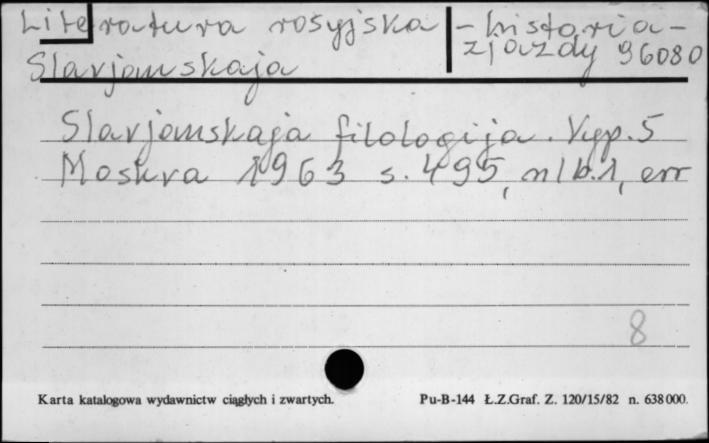 Literatura rosyjska - historia -
zjazdy 96080
Slavjanskaja
Slavjanskaja filologija. Vyp. 5
Moskva 1963 s. 495, nlb. 1, err
8
Karta katalogowa wydawnictw ciągłych i zwartych.
Pu-B-144 Ł.Z.Graf. Z. 120/15/82 n. 638000.